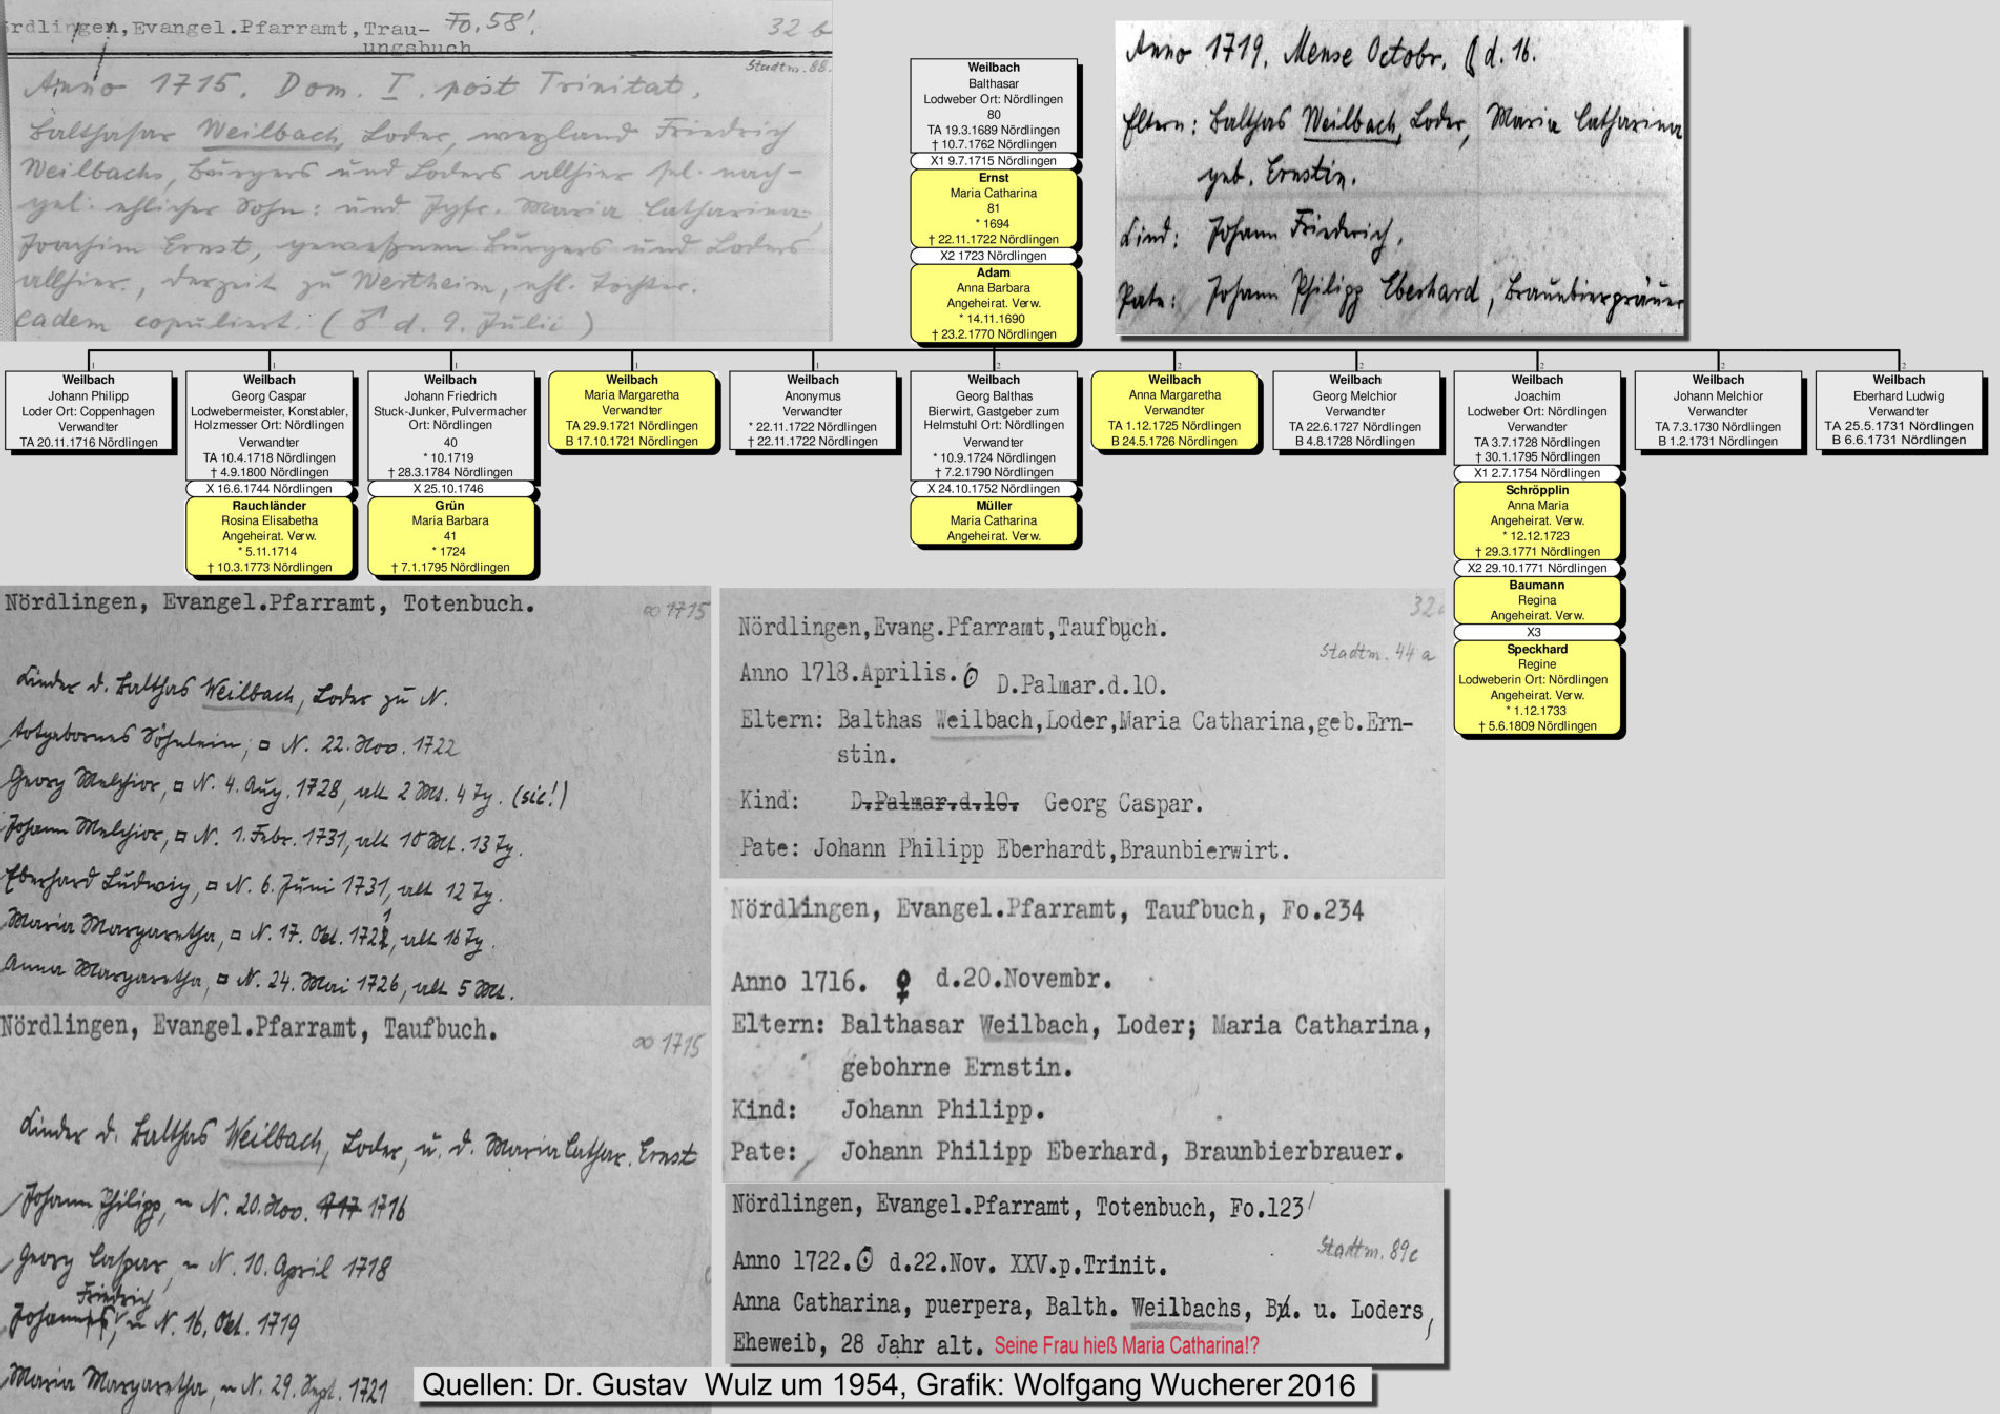 rdlingen, Evangel.Pfarramt, Trau-
ungsbuch
Fo. 58'.
32 b
Stadtm. 88.
Anno 1715. Dom. I. post Trinitat.
Balthasar Weilbach, Loder, weyland Friedrich
Weilbachs, Burgers und Loders allhier sel. nach-
gel. ehlicher Sohn: und Jgfr. Maria Catharina,
Joachim Ernst, geweßenen Burgers und Loders
allhier, derzeit zu Wertheim, ehl. Tochter.
eadem copuliert. (♂ d. 9. Julii)
Weilbach
Balthasar
Lodweber Ort: Nördlingen
80
TA 19.3.1689 Nördlingen
† 10.7.1762 Nördlingen
X1 9.7.1715 Nördlingen
Ernst
Maria Catharina
81
* 1694
† 22.11.1722 Nördlingen
X2 1723 Nördlingen
Adam
Anna Barbara
Angeheirat. Verw.
* 14.11.1690
† 23.2.1770 Nördlingen
Anno 1719. Mense Octobr. d. 16.
Eltern: Balthas Weilbach, Loder, Maria Catharina
geb. Ernstin.
Kind: Johann Friederich.
Pate: Johann Philipp Eberhard, Braunbierpräuer
1
Weilbach
Johann Philipp
Loder Ort: Coppenhagen
Verwandter
TA 20.11.1716 Nördlingen
1
Weilbach
Georg Caspar
Lodwebermeister, Konstabler,
Holzmesser Ort: Nördlingen
Verwandter
TA 10.4.1718 Nördlingen
† 4.9.1800 Nördlingen
X 16.6.1744 Nördlingen
Rauchländer
Rosina Elisabetha
Angeheirat. Verw.
* 5.11.1714
† 10.3.1773 Nördlingen
1
Weilbach
Johann Friedrich
Stuck-Junker, Pulvermacher
Ort: Nördlingen
40
* 10.1719
† 28.3.1784 Nördlingen
X 25.10.1746
Grün
Maria Barbara
41
* 1724
† 7.1.1795 Nördlingen
1
Weilbach
Maria Margaretha
Verwandter
TA 29.9.1721 Nördlingen
B 17.10.1721 Nördlingen
1
Weilbach
Anonymus
Verwandter
* 22.11.1722 Nördlingen
† 22.11.1722 Nördlingen
2
Weilbach
Georg Balthas
Bierwirt, Gastgeber zum
Helmstuhl Ort: Nördlingen
Verwandter
* 10.9.1724 Nördlingen
† 7.2.1790 Nördlingen
X 24.10.1752 Nördlingen
Müller
Maria Catharina
Angeheirat. Verw.
2
Weilbach
Anna Margaretha
Verwandter
TA 1.12.1725 Nördlingen
B 24.5.1726 Nördlingen
2
Weilbach
Georg Melchior
Verwandter
TA 22.6.1727 Nördlingen
B 4.8.1728 Nördlingen
2
Weilbach
Joachim
Lodweber Ort: Nördlingen
Verwandter
TA 3.7.1728 Nördlingen
† 30.1.1795 Nördlingen
X1 2.7.1754 Nördlingen
Schröpplin
Anna Maria
Angeheirat. Verw.
* 12.12.1723
† 29.3.1771 Nördlingen
X2 29.10.1771 Nördlingen
Baumann
Regina
Angeheirat. Verw.
X3
Speckhard
Regine
Lodweberin Ort: Nördlingen
Angeheirat. Verw.
* 1.12.1733
† 5.6.1809 Nördlingen
2
Weilbach
Johann Melchior
Verwandter
TA 7.3.1730 Nördlingen
B 1.2.1731 Nördlingen
2
Weilbach
Eberhard Ludwig
Verwandter
TA 25.5.1731 Nördlingen
B 6.6.1731 Nördlingen
Nördlingen, Evangel.Pfarramt, Totenbuch.
∞ 1715
Kinder d. Balthas Weilbach, Loder zu N.
totgebornes Söhnlein, □ N. 22. Nov. 1722
Georg Melchior, □ N. 4. Aug. 1728, alt 2 Mt. 4 Tg. (sic!)
Johann Melchior, □ N. 1. Febr. 1731, alt 10 Mt. 13 Tg.
Eberhard Ludwig, □ N. 6. Juni 1731, alt 12 Tg.
Maria Margaretha, □ N. 17. Okt. 1721, alt 16 Tg.
Anna Margaretha, □ N. 24. Mai 1726, alt 5 Mt.
Nördlingen, Evangel.Pfarramt, Taufbuch.
∞ 1715
Kinder d. Balthas Weilbach, Loder, u. d. Maria Cathar. Ernst
Johann Philipp, ~ N. 20. Nov. 1717 1716
Georg Caspar, ~ N. 10. April 1718
Johann Friedrich, ~ N. 16. Okt. 1719
Maria Margaretha, ~ N. 29. Sept. 1721
Nördlingen,Evang.Pfarramt,Taufbuch.
Stadtm. 44 a
Anno 1718.Aprilis. ☉ D.Palmar.d.10.
Eltern: Balthas Weilbach,Loder,Maria Catharina,geb.Ern-
stin.
Kind: D.Palmar.d.10. Georg Caspar.
Pate: Johann Philipp Eberhardt,Braunbierwirt.
Nördlingen, Evangel.Pfarramt, Taufbuch, Fo.234
Anno 1716. ♀ d.20.Novembr.
Eltern: Balthasar Weilbach, Loder; Maria Catharina,
gebohrne Ernstin.
Kind: Johann Philipp.
Pate: Johann Philipp Eberhard, Braunbierbrauer.
Nördlingen, Evangel.Pfarramt, Totenbuch, Fo.123'
Stadtm. 89c
Anno 1722.☉ d.22.Nov. XXV.p.Trinit.
Anna Catharina, puerpera, Balth. Weilbachs, Bu. u. Loders,
Eheweib, 28 Jahr alt. Seine Frau hieß Maria Catharina!?
Quellen: Dr. Gustav Wulz um 1954, Grafik: Wolfgang Wucherer 2016